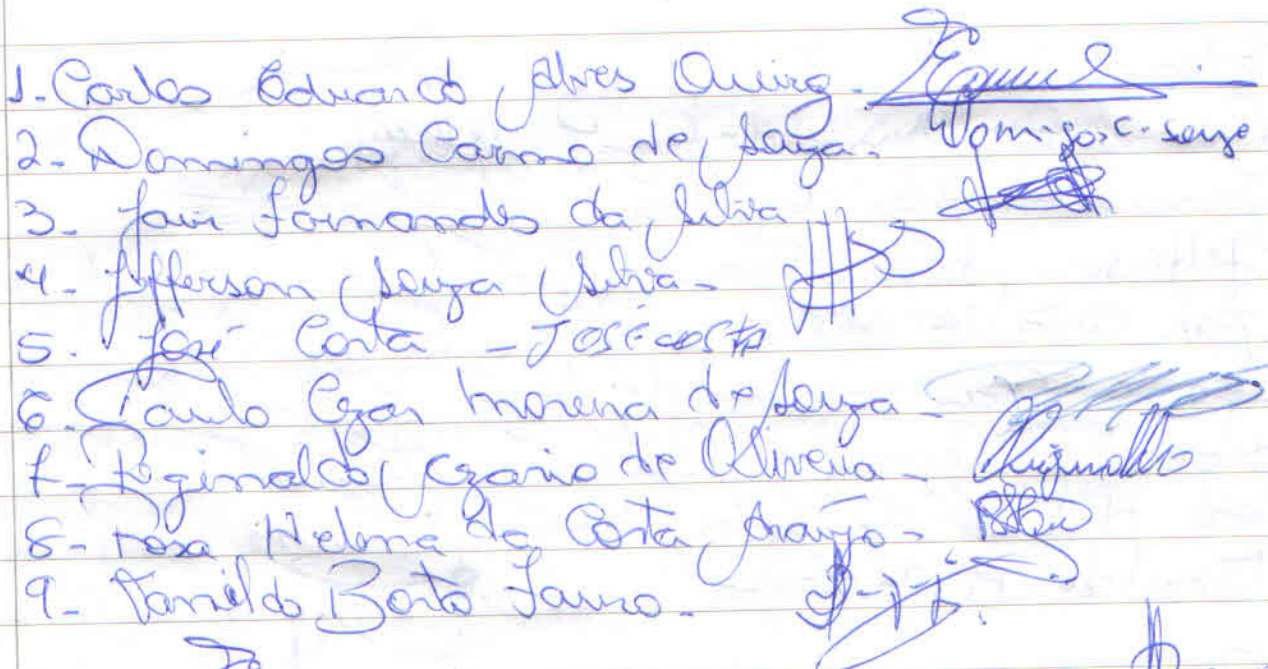 1- Carlos Eduardo Alves Queiroz -
2- Domingos Carmo de Souza - Domingos C. Souza
3- Jair Fernandes da Silva
4- Jefferson Souza Silva -
5. José Costa - JOSÉ COSTA
6. Paulo Cezar Moreira de Souza -
7- Reginaldo Cezario de Oliveira - Reginaldo
8- Rosa Helena da Costa Araújo -
9- Vanildo Bento -